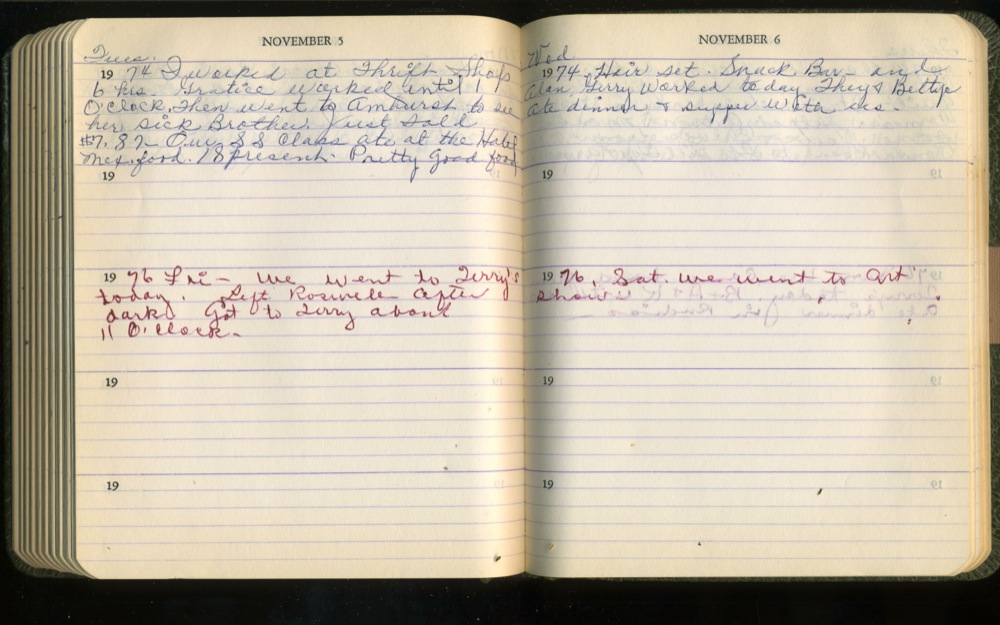 NOVEMBER 5
Tues.
1974 I worked at Thrift Shop
6 hrs. Gratice worked until 1
O'clock. Then went to Amhurst to see
her sick Brother. Just sold
$7.82 Our SS Class ate at the Hotel
Mex. food. 18 present. Pretty good food
19
1976 Fri - We went to Terry's
today. Left Roswell after
dark. Got to Terry about
11 O'clock.
19
19
NOVEMBER 6
Wed
1974. Hair set. Snack Bar and
Alan, Terry worked today. They & Bettye
ate dinner & supper with us.
19
1976. Sat. We went to art
show.
19
19